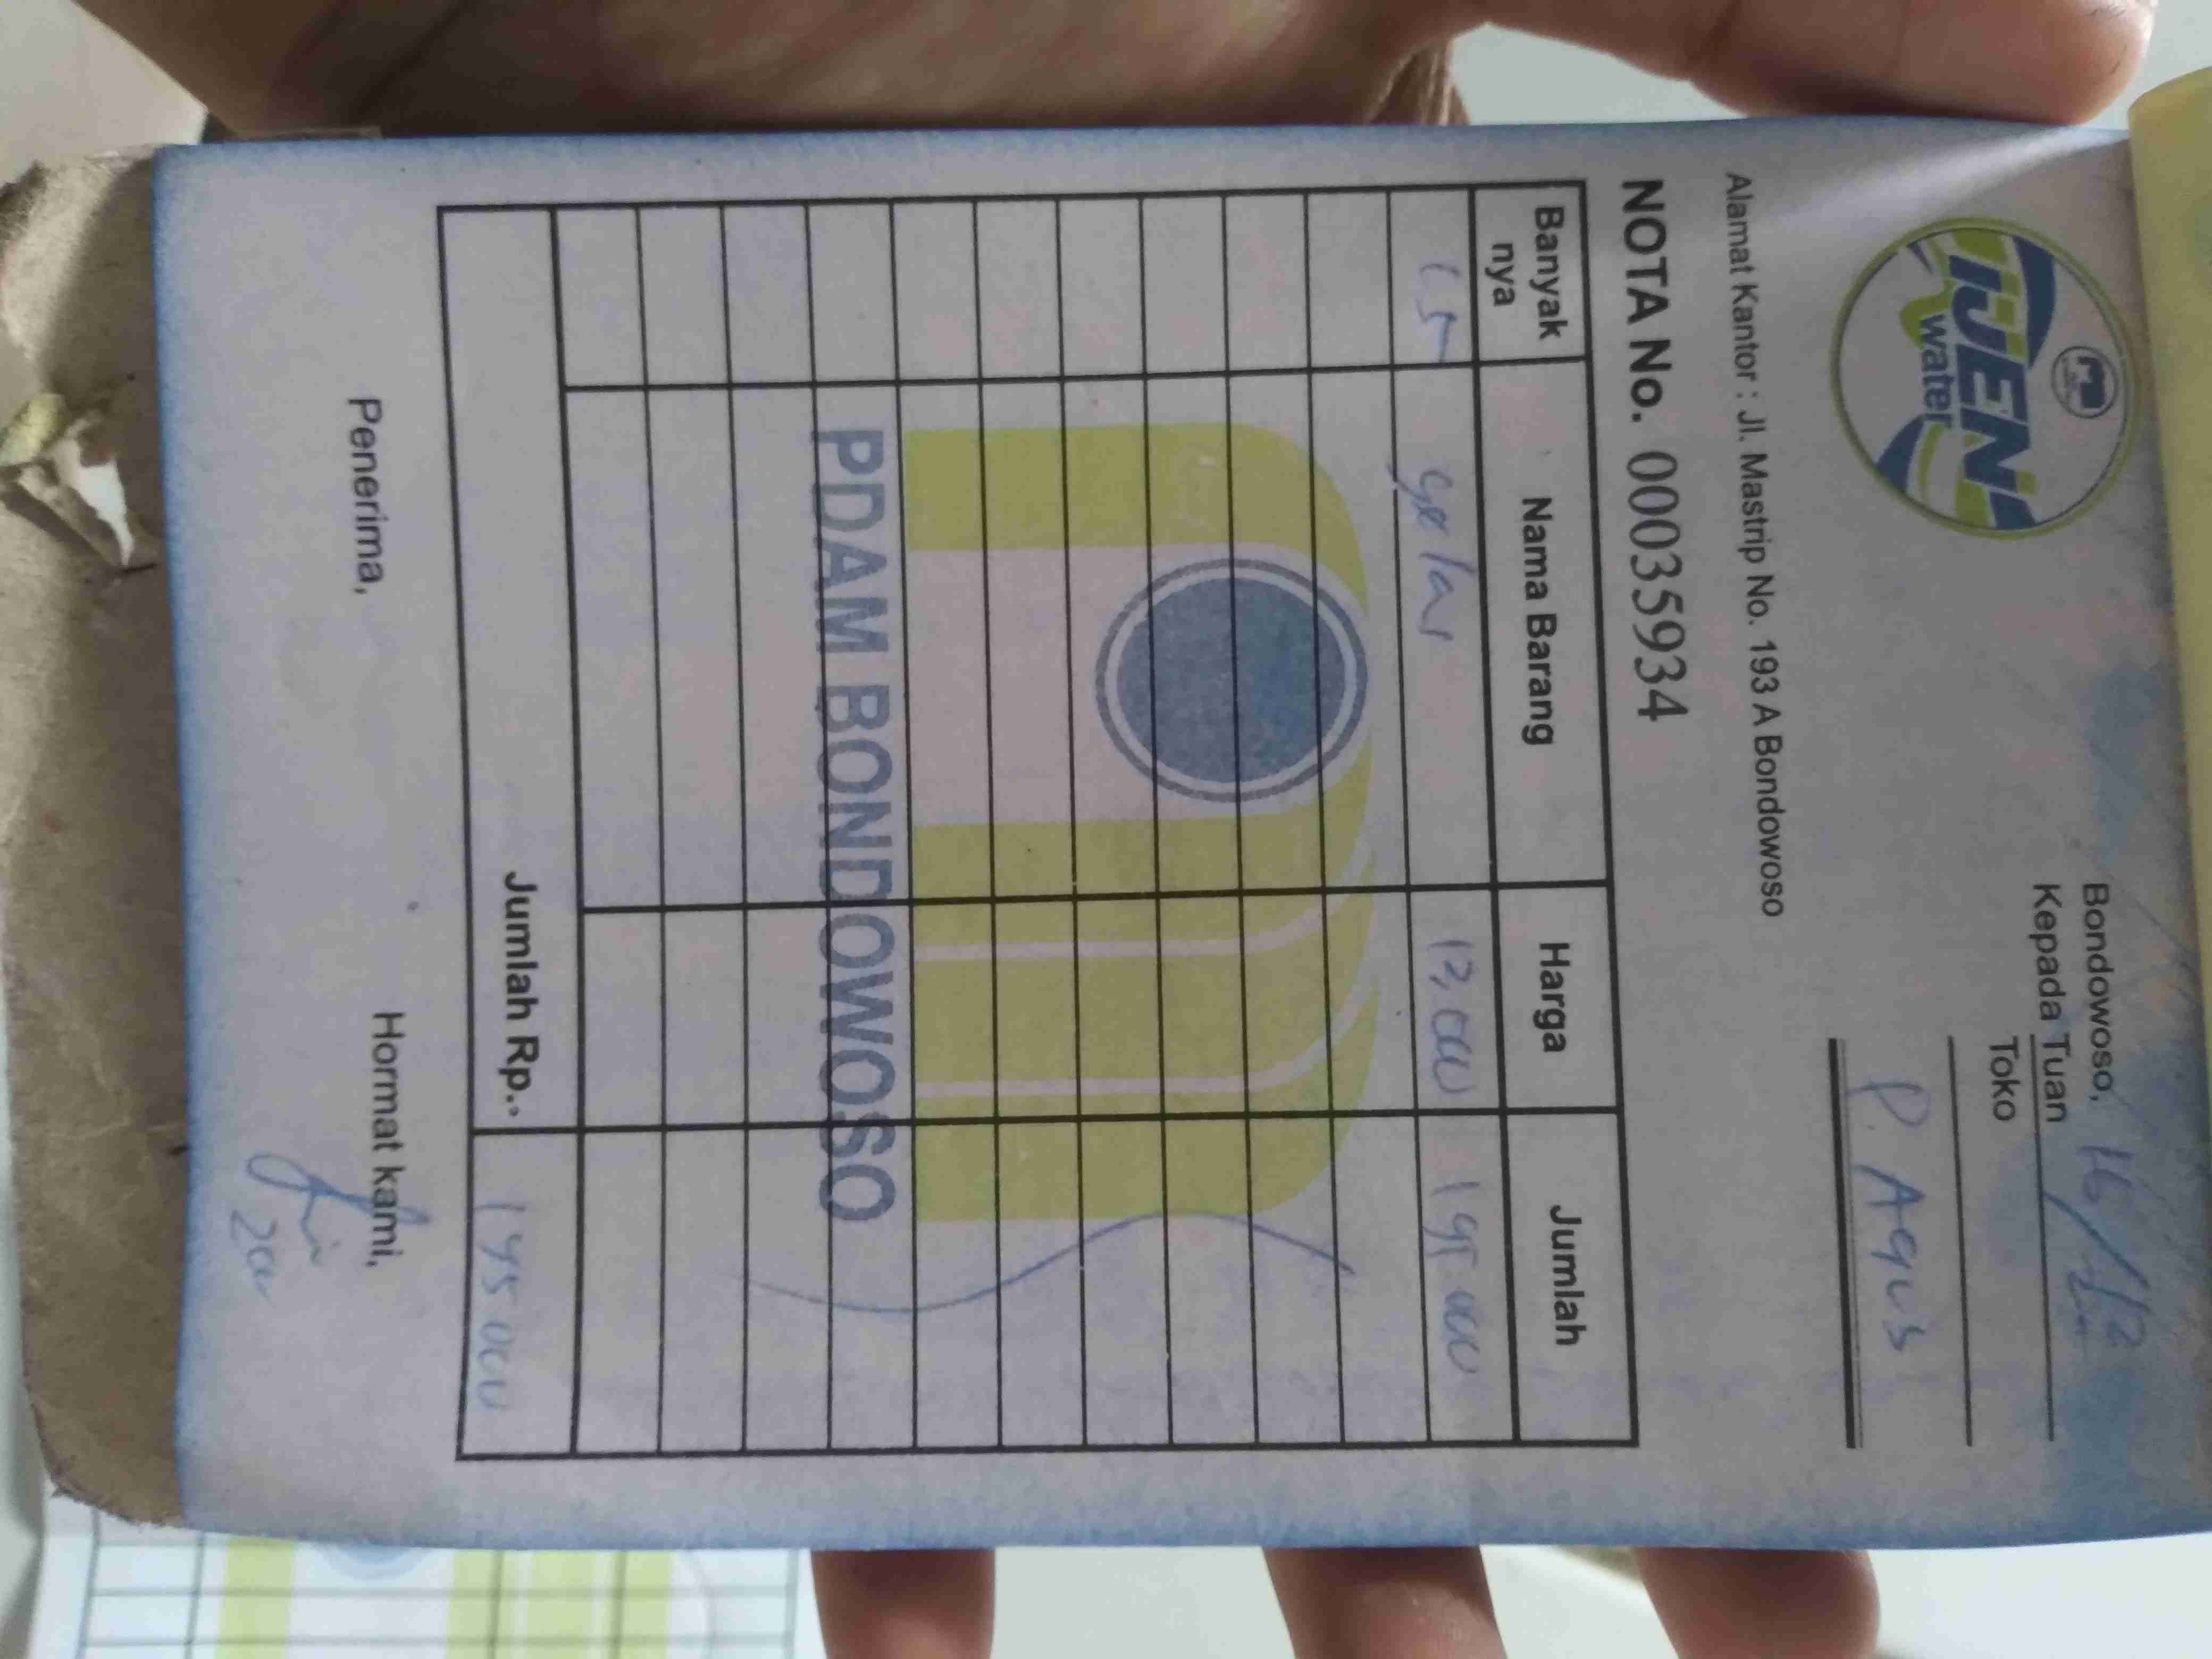 IJEN
water
Bondowoso, 16/12
Kepada Tuan
Toko
P. Agus
Alamat Kantor : Jl. Mastrip No. 193 A Bondowoso
NOTA No. 000359934
Banyak nya Nama Barang Harga Jumlah
15 13.000 195.000
PDAM BONDOWOSO
Jumlah Rp.. 195.000
Penerima, Hormat kami,